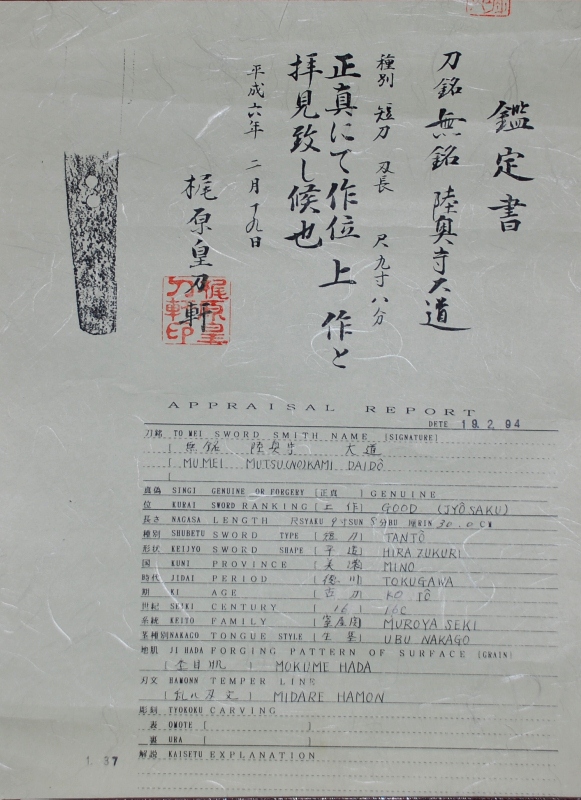 鑑定書
刀銘 無銘 陸奥守大道
種別 短刀 刃長 尺九寸八分
正真にて作位上作と
拝見致し候也
平成六年 二月十九日
梶原皇刀軒
梶原皇刀軒印
APPRAISAL REPORT
DETE 19.2.94
刀銘 TO MEI SWORD SMITH NAME [SIGNATURE]
[ 無銘 陸奥守 大道
[ MUMEI MUTSU(NO)KAMI DAIDÔ
[
真偽 SINGI GENUINE OR FORGERY [正真 ] GENUINE
位 KURAI SWORD RANKING [上作] GOOD (JYÔSAKU)
長さ NAGASA LENGTH 尺SYAKU 9寸SUN 8分BU 厘RIN 30.0CM
種別 SHUBETU SWORD TYPE [短刀] TANTÔ
形状 KEIJYO SWORD SHAPE [平造] HIRAZUKURI
国 KUNI PROVINCE [美濃] MINO
時代 JIDAI PERIOD [徳川] TOKUGAWA
期 KI AGE [古刀] KO TÔ
世紀 SEIKI CENTURY [16] 16C
系統 KEITO FAMILY [室屋関] MUROYA SEKI
茎種別 NAKAGO TONGUE STYLE [生茎] UBU NAKAGO
地肌 JI HADA FORGING PATTERN OF SURFACE [GRAIN]
[杢目肌] MOKUME HADA
刃文 HAMONN TEMPER LINE
[乱れ刃文] MIDARE HAMON
彫刻 TYOKOKU CARVING
表 OMOTE [ ]
裏 URA [ ]
解説 KAISETU EXPLANATION